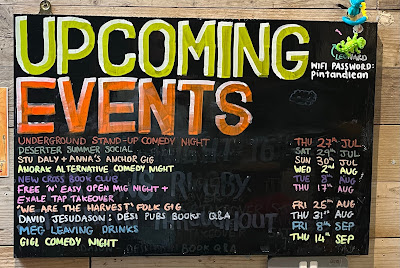 UPCOMING
EVENTS
LEONARD
WIFI PASSWORD:
pintandlean
UNDERGROUND STAND-UP COMEDY NIGHT THU 27TH JUL
DESERTER SUMMER SOCIAL SAT 29TH JUL
STU DALY + ANNA'S ANCHOR GIG SUN 30TH JUL
ANORAK ALTERNATIVE COMEDY NIGHT WED 2ND AUG
NEW CROSS BOOK CLUB TUE AUG
FREE 'N' EASY OPEN MIG NIGHT + THU 17TH AUG
EXALE TAP TAKEOVER
'WE ARE THE HARVEST' FOLK GIG FRI 25TH AUG
DAVID JESUDASON: DESI PUBS BOOK Q&A THU 31ST AUG
MEG LEAVING DRINKS FRI 8TH SEP
GIGL COMEDY NIGHT THU 14TH SEP
RUGBY
THROUGHOUT
BOOK Q&A